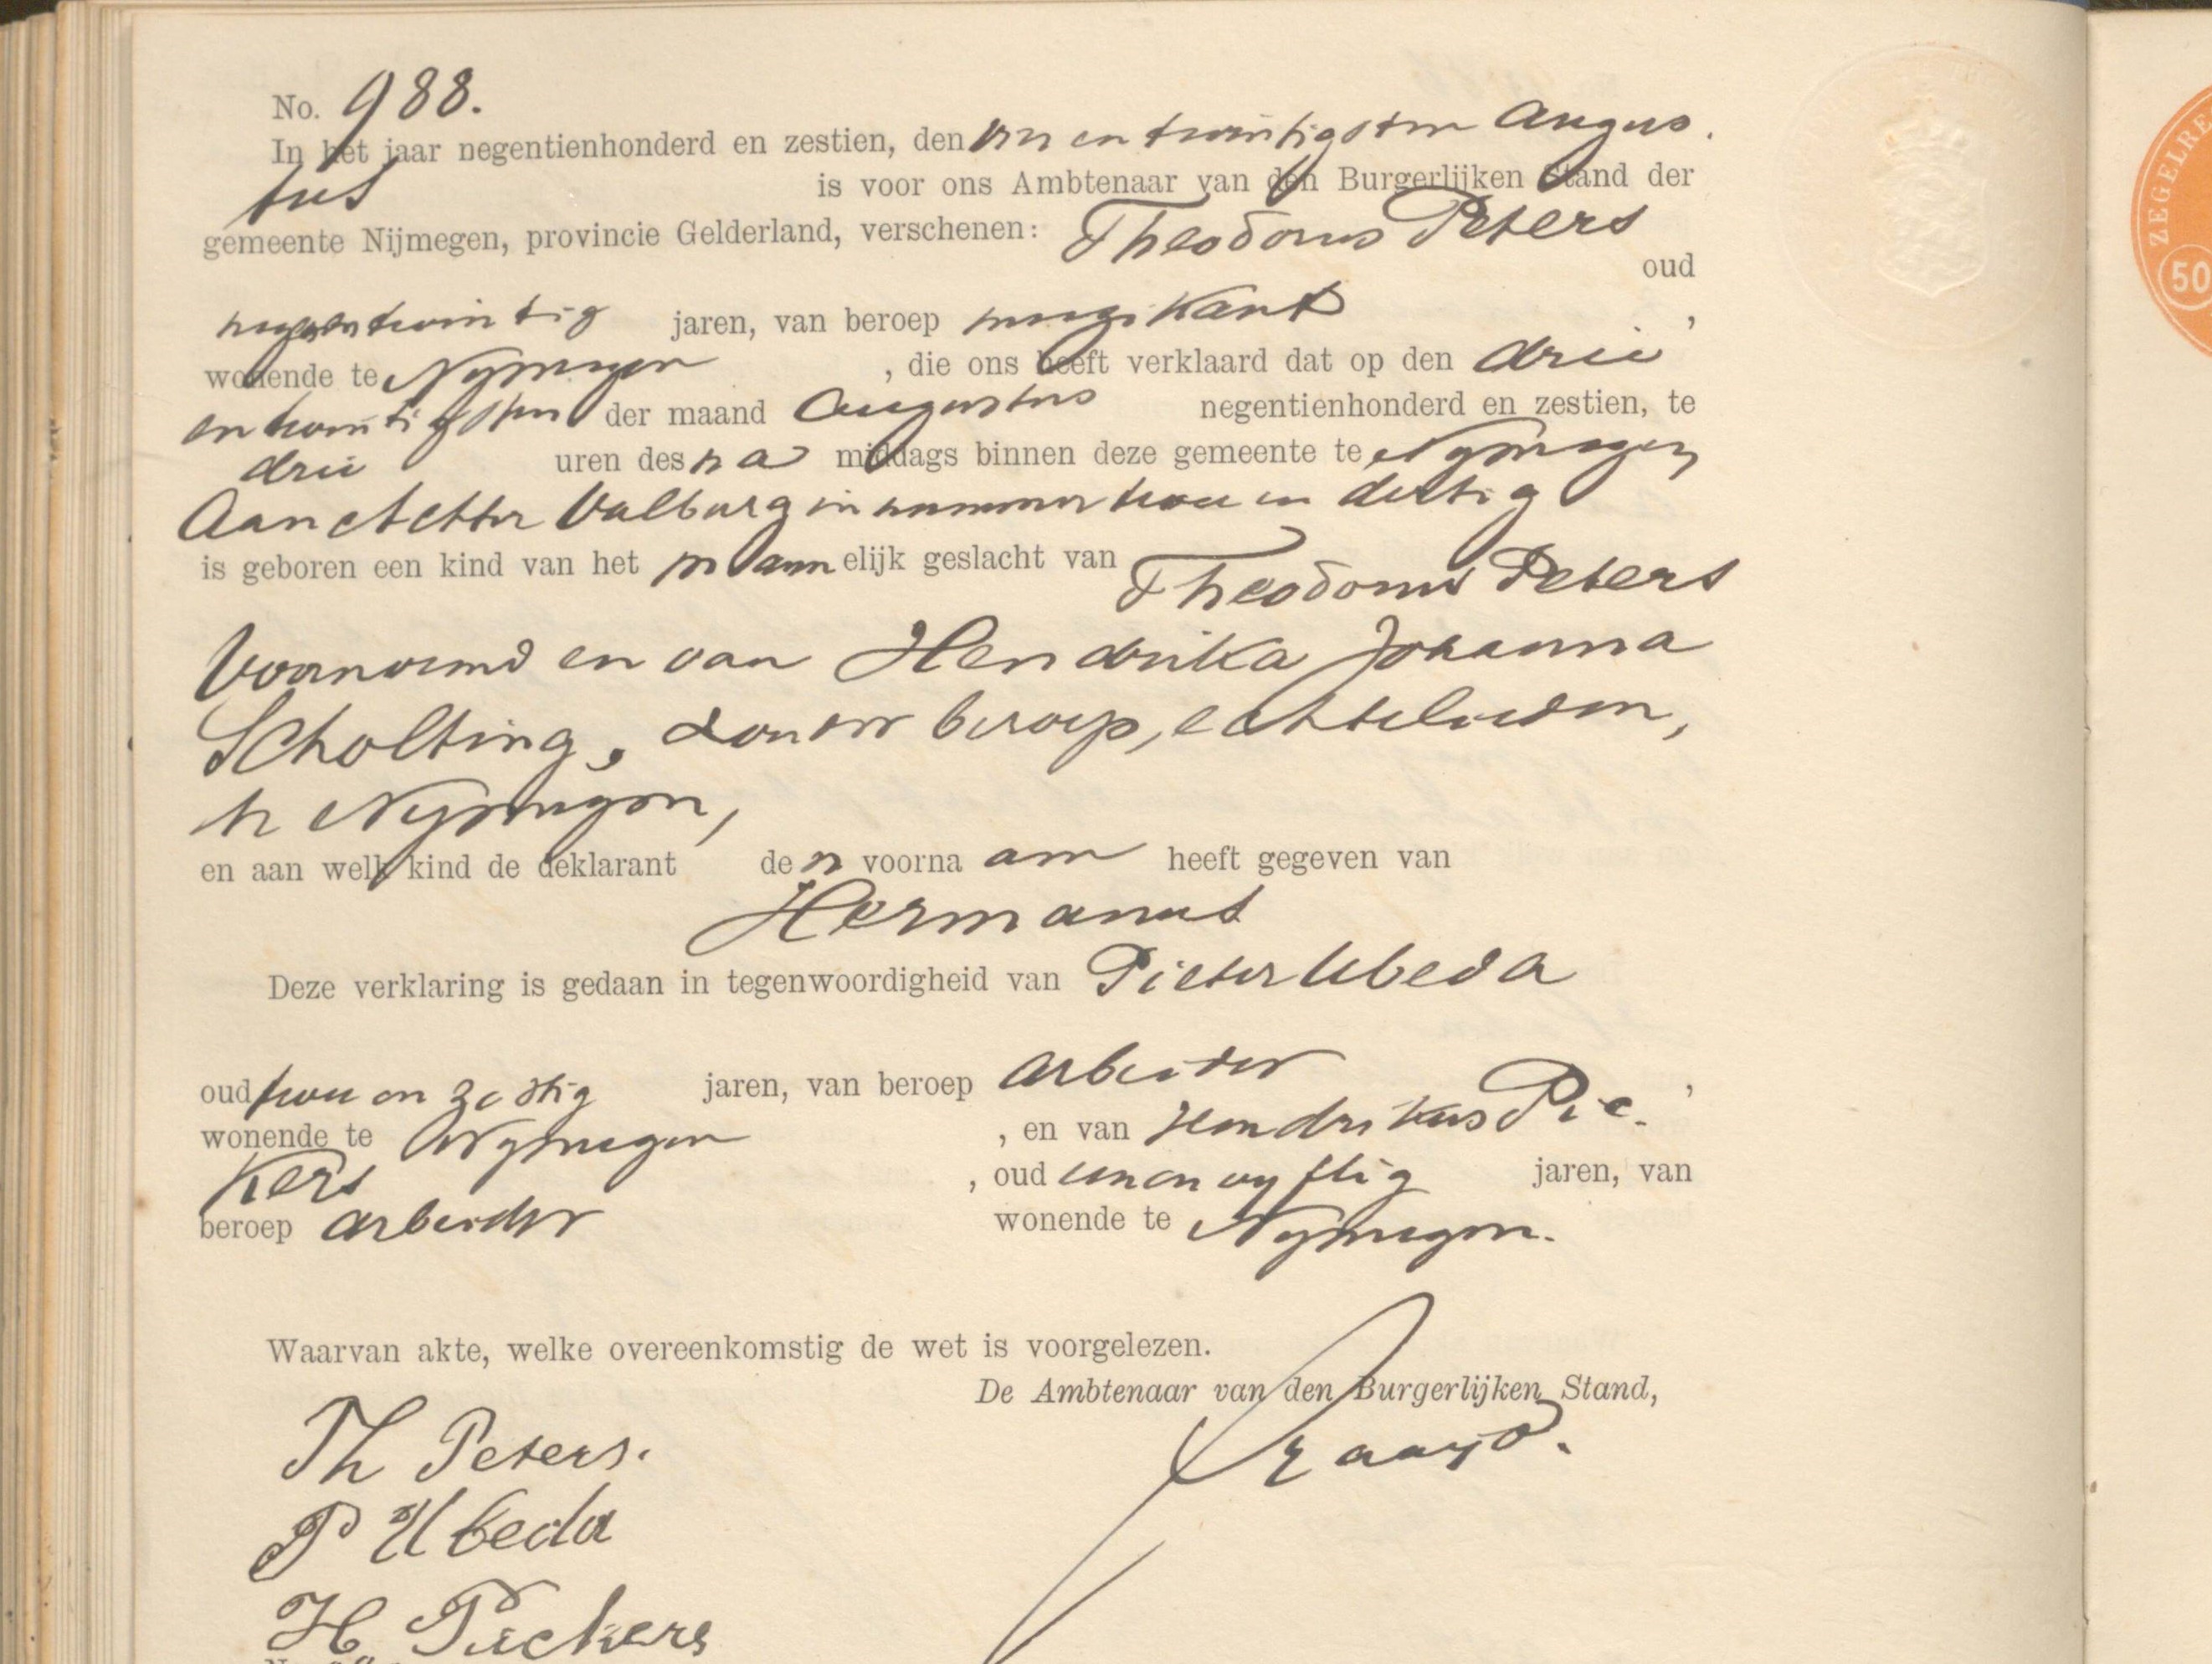 No. 988.
In het jaar negentienhonderd en zestien, den vier en twintigsten Augus
tus is voor ons Ambtenaar van den Burgerlijken Stand der
gemeente Nijmegen, provincie Gelderland, verschenen: Theodorus Peters
oud
negenentwintig jaren, van beroep muzikant,
wonende te Nymegen, die ons heeft verklaard dat op den drie
entwintigsten der maand Augustus negentienhonderd en zestien, te
drie uren des na middags binnen deze gemeente te Nymegen
Aan nummer twee en dertig
is geboren een kind van het mannelijk geslacht van Theodorus Peters
Voornoemd en van Hendrika Johanna
Scholting, zonder beroep, echtelieden,
te Nymegen,
en aan welk kind de deklarant den voornaam heeft gegeven van
Hermanus
Deze verklaring is gedaan in tegenwoordigheid van Pieter Ubeda
oud twee en zestig jaren, van beroep arbeider,
wonende te Nymegen, en van Hendrikus Pie-
kers, oud een en vyftig jaren, van
beroep arbeider wonende te Nymegen.
Waarvan akte, welke overeenkomstig de wet is voorgelezen.
De Ambtenaar van den Burgerlijken Stand,
Th Peters.
P Ubeda
H Pieckers
ZEGELRE
50